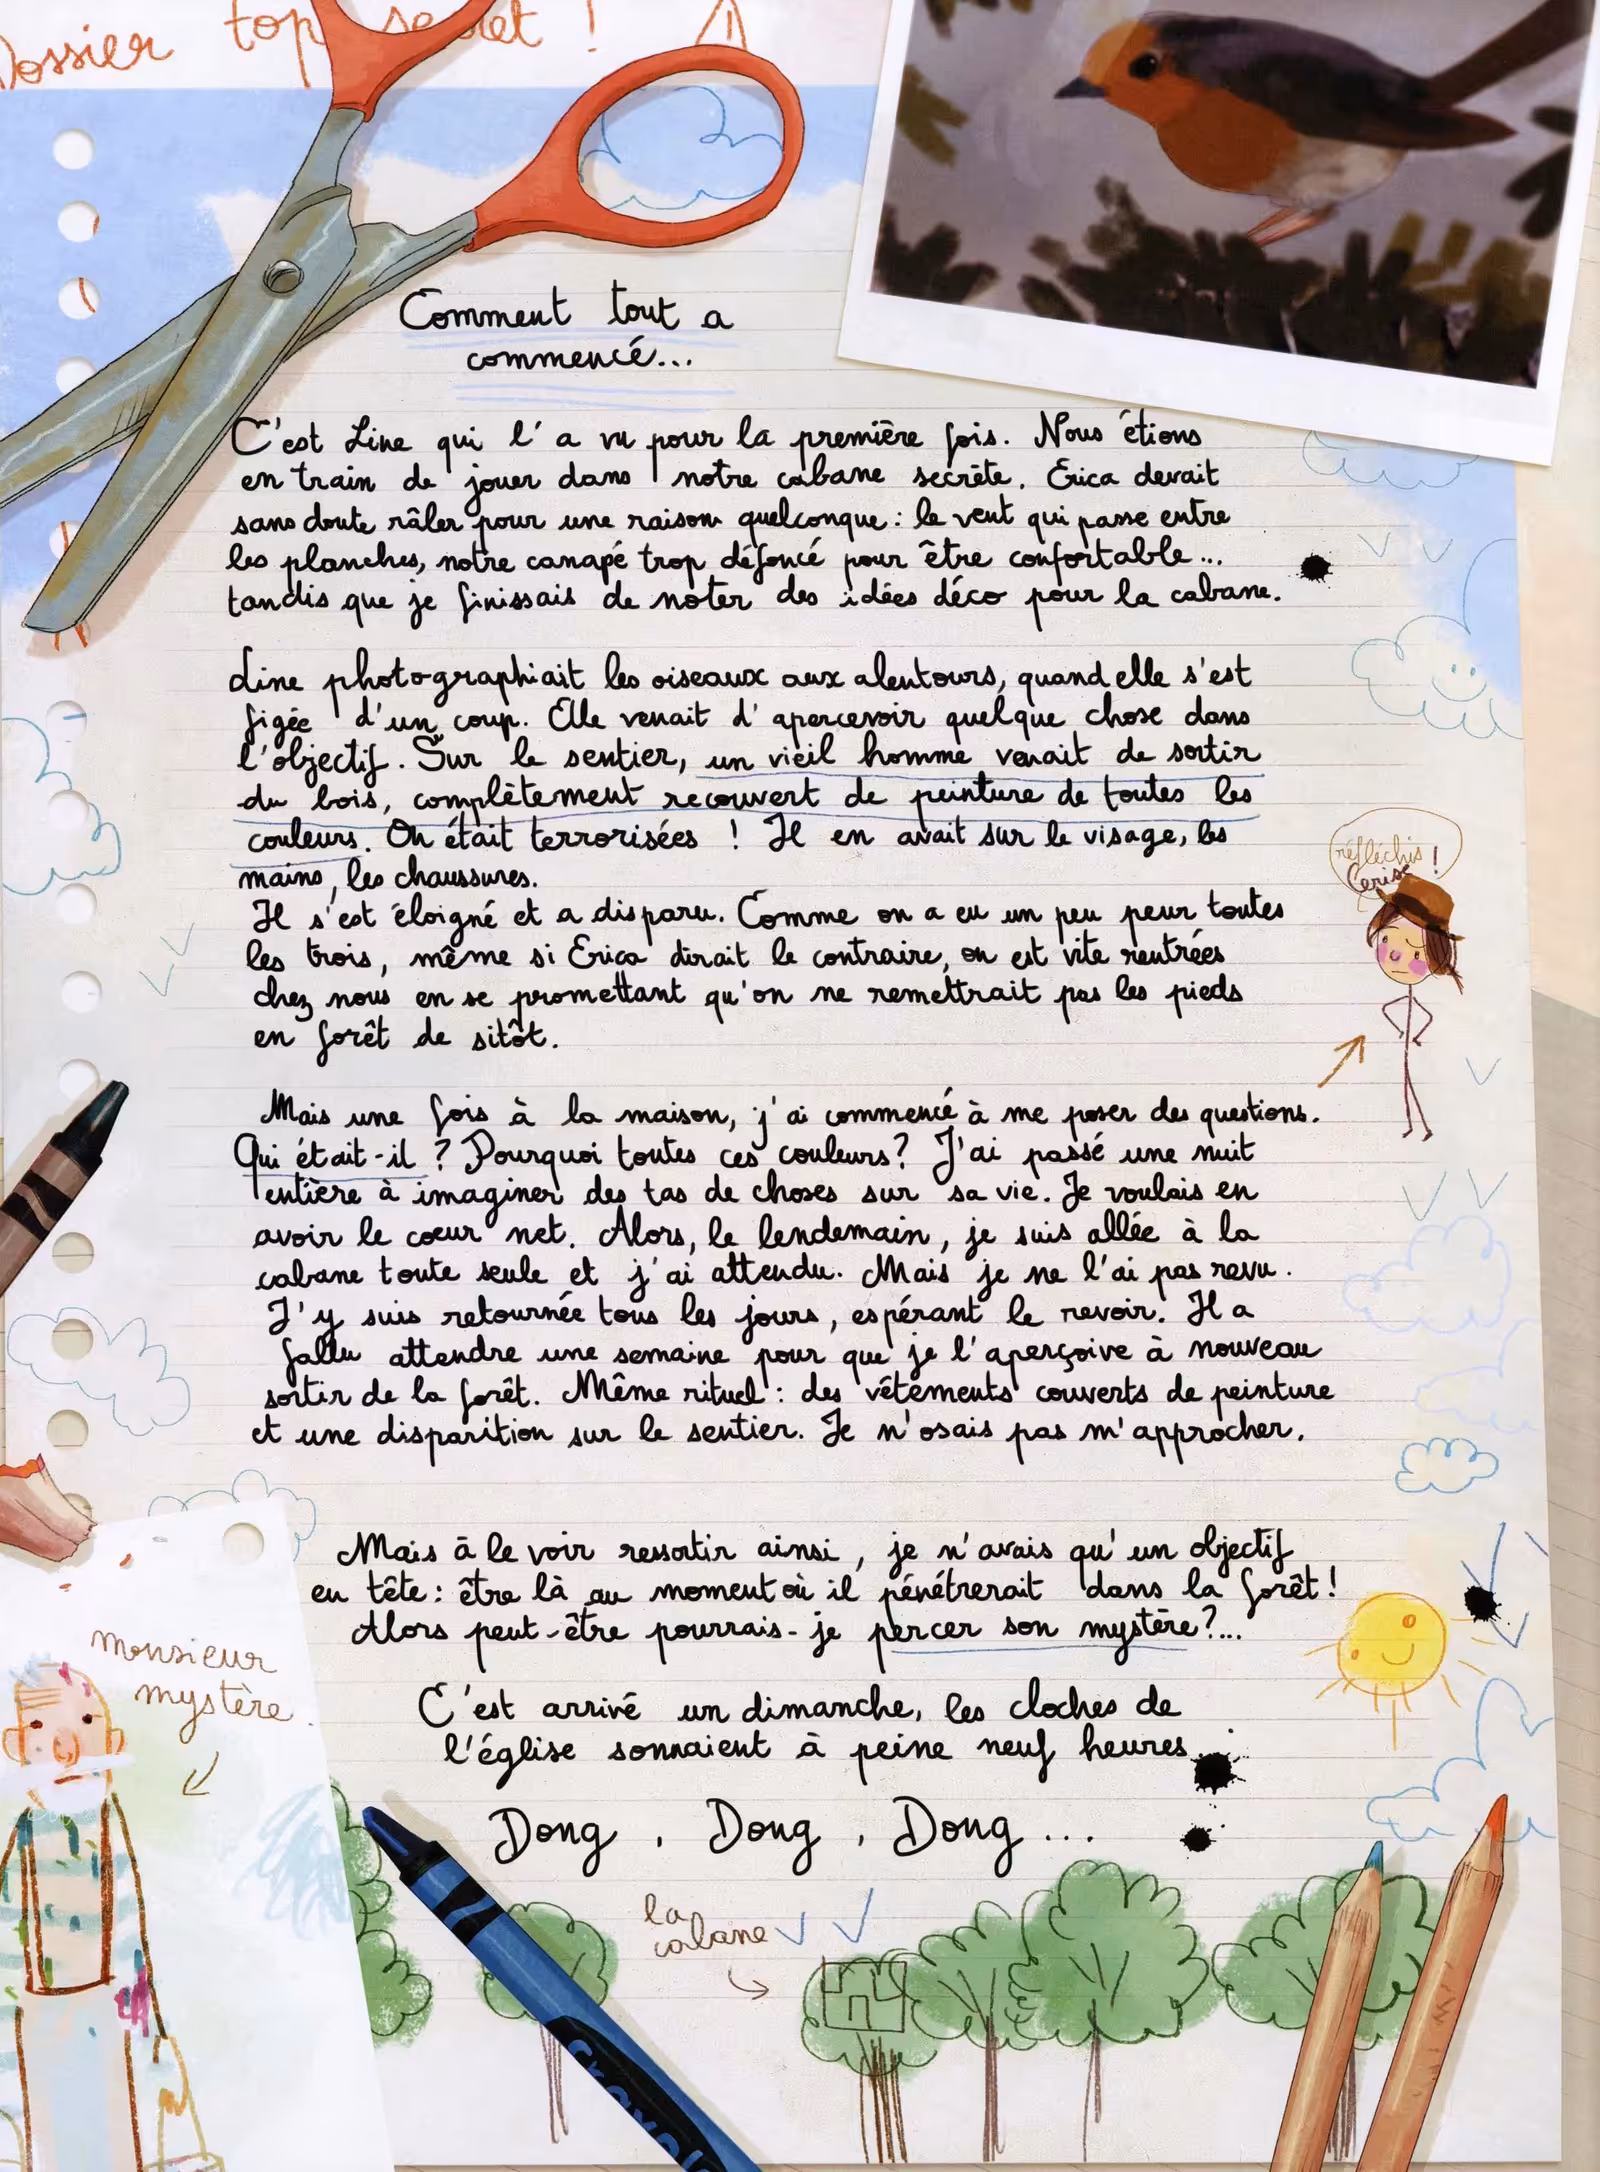 Dossier top secret !
Comment tout a
commencé...
C'est Line qui l'a vu pour la première fois. Nous étions
en train de jouer dans notre cabane secrète. Erica devait
sans doute râler pour une raison quelconque : le vent qui passe entre
les planches, notre canapé trop défoncé pour être confortable...
tandis que je finissais de noter des idées déco pour la cabane.
Line photographiait les oiseaux aux alentours, quand elle s'est
figée d'un coup. Elle venait d'apercevoir quelque chose dans
l'objectif. Sur le sentier, un vieil homme venait de sortir
du bois, complètement recouvert de peinture de toutes les
couleurs. On était terrorisées ! Il en avait sur le visage, les
mains, les chaussures.
Il s'est éloigné et a disparu. Comme on a eu un peu peur toutes
les trois, même si Erica dirait le contraire, on est vite rentrées
chez nous en se promettant qu'on ne remettrait pas les pieds
en forêt de sitôt.
réfléchis
Cerise !
Mais une fois à la maison, j'ai commencé à me poser des questions.
Qui était-il ? Pourquoi toutes ces couleurs ? J'ai passé une nuit
entière à imaginer des tas de choses sur sa vie. Je voulais en
avoir le cœur net. Alors, le lendemain, je suis allée à la
cabane toute seule et j'ai attendu. Mais je ne l'ai pas revu.
J'y suis retournée tous les jours, espérant le revoir. Il a
fallu attendre une semaine pour que je l'aperçoive à nouveau
sortir de la forêt. Même rituel : des vêtements couverts de peinture
et une disparition sur le sentier. Je n'osais pas m'approcher.
Mais à le voir ressortir ainsi, je n'avais qu'un objectif
en tête : être là au moment où il pénétrerait dans la forêt !
Alors peut-être pourrais-je percer son mystère ?...
monsieur
mystère.
C'est arrivé un dimanche, les cloches de
l'église sonnaient à peine neuf heures.
Dong, Dong, Dong...
la
cabane